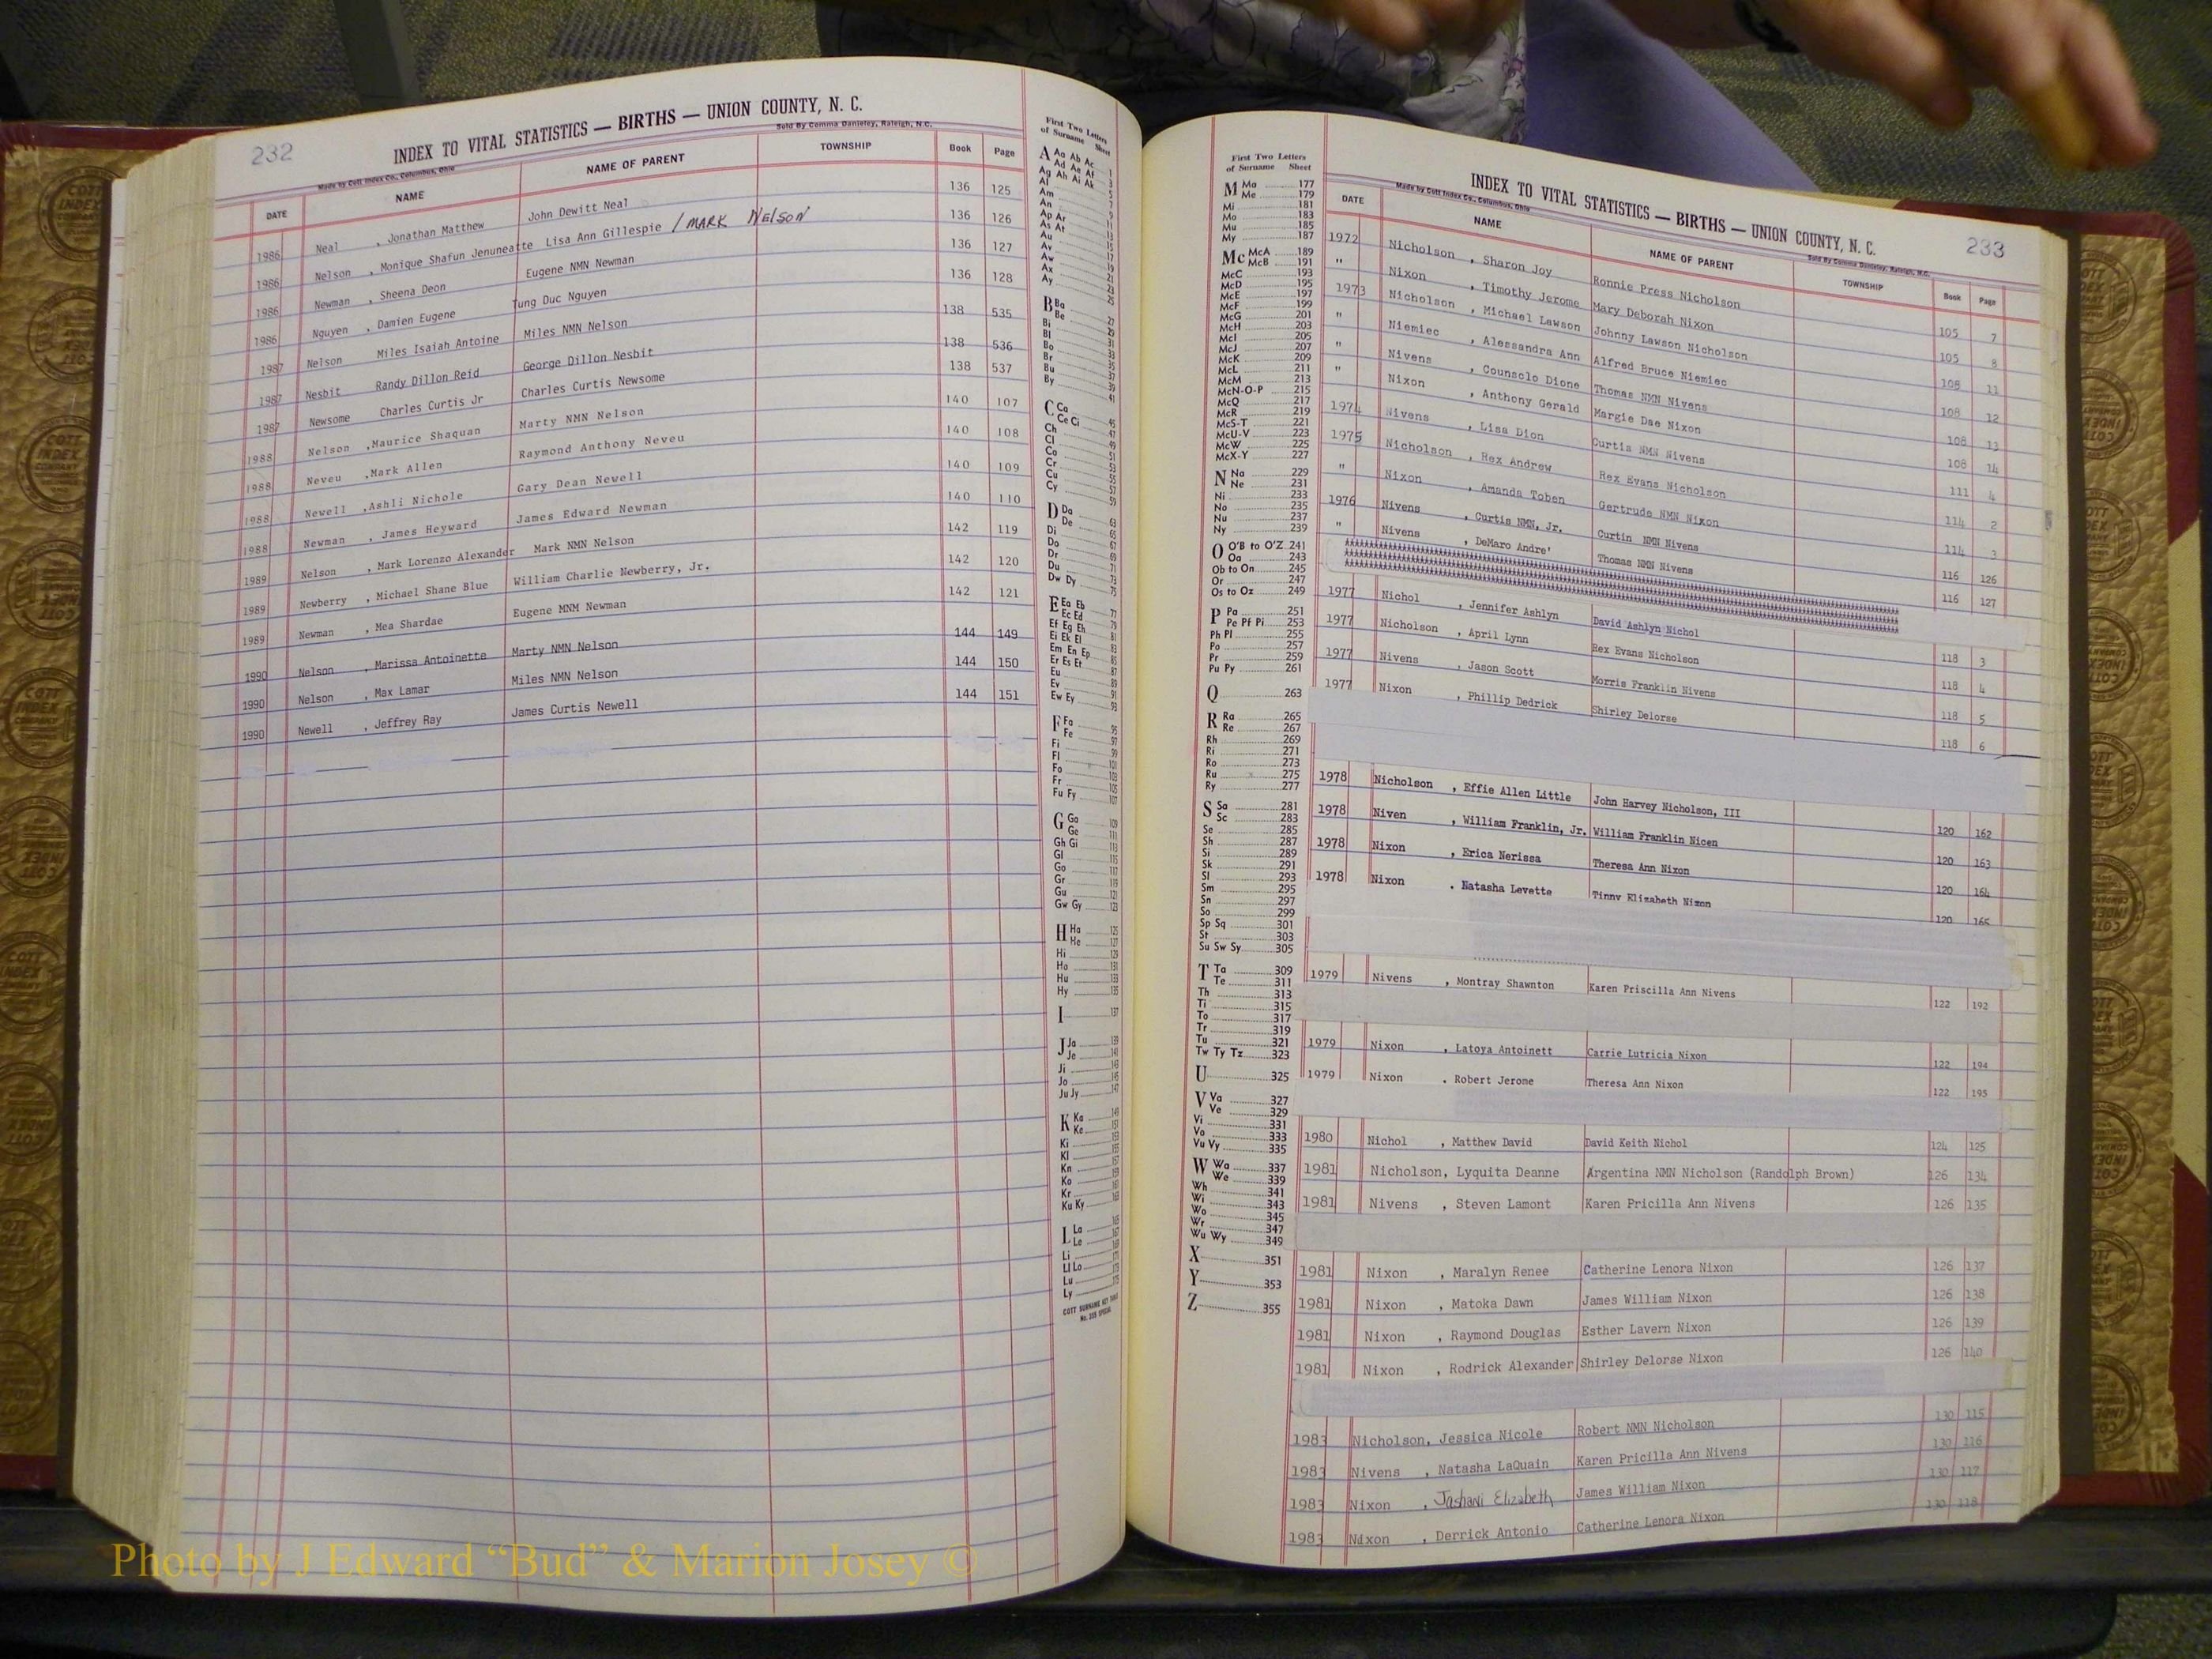 232
INDEX TO VITAL STATISTICS — BIRTHS — UNION COUNTY, N. C.
Made by Cott Index Co., Columbus, Ohio
Sold By Comma Danieley, Raleigh, N.C.
DATE NAME NAME OF PARENT TOWNSHIP Book Page
1986 Neal , Jonathan Matthew John Dewitt Neal 136 125
1986 Nelson , Monique Shafun Jenuneatte Lisa Ann Gillespie / MARK NELSON 136 126
1986 Newman , Sheena Deon Eugene NMN Newman 136 127
1986 Nguyen , Damien Eugene Tung Duc Nguyen 136 128
1987 Nelson Miles Isaiah Antoine Miles NMN Nelson 138 535
1987 Nesbit Randy Dillon Reid George Dillon Nesbit 138 536
1987 Newsome Charles Curtis Jr Charles Curtis Newsome 138 537
1988 Nelson ,Maurice Shaquan Marty NMN Nelson 140 107
1988 Neveu ,Mark Allen Raymond Anthony Neveu 140 108
1988 Newell ,Ashli Nichole Gary Dean Newell 140 109
1988 Newman , James Heyward James Edward Newman 140 110
1989 Nelson , Mark Lorenzo Alexander Mark NMN Nelson 142 119
1989 Newberry , Michael Shane Blue William Charlie Newberry, Jr. 142 120
1989 Newman , Mea Shardae Eugene MNM Newman 142 121
1990 Nelson , Marissa Antoinette Marty NMN Nelson 144 149
1990 Nelson , Max Lamar Miles NMN Nelson 144 150
1990 Newell , Jeffrey Ray James Curtis Newell 144 151
First Two Letters
of Surname Sheet
A Aa Ab Ac 1
Ad Ae Af 3
Ag Ah Ai Ak 5
Al 7
Am 9
An 11
Ap Ar 13
As At 15
Au 17
Av 19
Aw 21
Ax 23
Ay 25
B Ba 27
Be 29
Bi 31
Bl 33
Bo 35
Br 37
Bu 39
By 41
C Ca 45
Ce Ci 47
Ch 49
Cl 51
Co 53
Cr 55
Cu 57
Cy 59
D Da 63
De 65
Di 67
Do 69
Dr 71
Du 73
Dw Dy 75
E Ea Eb 77
Ec Ed 79
Ef Eg Eh 81
Ei Ek El 83
Em En Ep 85
Er Es Et 87
Eu 89
Ev 91
Ew Ey 93
F Fa 95
Fe 97
Fi 99
Fl 101
Fo 103
Fr 105
Fu Fy 107
G Ga 109
Ge 111
Gh Gi 113
Gl 115
Go 117
Gr 119
Gu 121
Gw Gy 123
H Ha 125
He 127
Hi 129
Ho 131
Hu 133
Hy 135
I 137
J Ja 139
Je 141
Ji 143
Jo 145
Ju Jy 147
K Ka 149
Ke 151
Ki 153
Kl 155
Kn 157
Ko 159
Kr 161
Ku Ky 163
L La 165
Le 167
Li 169
Ll Lo 171
Lu 173
Ly 175
COTT SURNAME KEY TABLE
233
INDEX TO VITAL STATISTICS — BIRTHS — UNION COUNTY, N. C.
Made by Cott Index Co., Columbus, Ohio
Sold By Comma Danieley, Raleigh, N.C.
First Two Letters
of Surname Sheet
M Ma 177
Me 179
Mi 181
Mo 183
Mu 185
My 187
Mc McA 189
McB 191
McC 193
McD 195
McE 197
McF 199
McG 201
McH 203
McI 205
McJ 207
McK 209
McL 211
McM 213
McN-O-P 215
McQ 217
McR 219
McS-T 221
McU-V 223
McW 225
McX-Y 227
N Na 229
Ne 231
Ni 233
No 235
Nu 237
Ny 239
O O'B to O'Z 241
Oa 243
Ob to On 245
Or 247
Os to Oz 249
P Pa 251
Pe Pf Pi 253
Ph Pl 255
Po 257
Pr 259
Pu Py 261
Q 263
R Ra 265
Re 267
Rh 269
Ri 271
Ro 273
Ru 275
Ry 277
S Sa 281
Sc 283
Se 285
Sh 287
Si 289
Sk 291
Sl 293
Sm 295
Sn 297
So 299
Sp Sq 301
St 303
Su Sw Sy 305
T Ta 309
Te 311
Th 313
Ti 315
To 317
Tr 319
Tu 321
Tw Ty Tz 323
U 325
V Va 327
Ve 329
Vi 331
Vo 333
Vu Vy 335
W Wa 337
We 339
Wh 341
Wi 343
Wo 345
Wr 347
Wu Wy 349
X 351
Y 353
Z 355
DATE NAME NAME OF PARENT TOWNSHIP Book Page
1972 Nicholson , Sharon Joy Ronnie Press Nicholson 105 7
" Nixon , Timothy Jerome Mary Deborah Nixon 105 8
1973 Nicholson , Michael Lawson Johnny Lawson Nicholson 108 11
" Niemiec , Alessandra Ann Alfred Bruce Niemiec 108 12
" Nivens , Counsolo Dione Thomas NMN Nivens 108 13
" Nixon , Anthony Gerald Margie Dae Nixon 108 14
1974 Nivens , Lisa Dion Curtis NMN Nivens 111 4
1975 Nicholson , Rex Andrew Rex Evans Nicholson 114 2
" Nixon , Amanda Toben Gertrude NMN Nixon 114 3
1976 Nivens , Curtis NMN, Jr. Curtin NMN Nivens 116 126
" Nivens , DeMaro Andre' Thomas NMN Nivens 116 127
1977 Nichol , Jennifer Ashlyn David Ashlyn Nichol 118 3
1977 Nicholson , April Lynn Rex Evans Nicholson 118 4
1977 Nivens , Jason Scott Morris Franklin Nivens 118 5
1977 Nixon , Phillip Dedrick Shirley Delorse 118 6
1978 Nicholson , Effie Allen Little John Harvey Nicholson, III 120 162
1978 Niven , William Franklin, Jr. William Franklin Nicen 120 163
1978 Nixon , Erica Nerissa Theresa Ann Nixon 120 164
1978 Nixon . Natasha Levette Tinny Elizabeth Nixon 120 165
1979 Nivens , Montray Shawnton Karen Priscilla Ann Nivens 122 192
1979 Nixon , Latoya Antoinett Carrie Lutricia Nixon 122 194
1979 Nixon . Robert Jerome Theresa Ann Nixon 122 195
1980 Nichol , Matthew David David Keith Nichol 124 125
1981 Nicholson, Lyquita Deanne Argentina NMN Nicholson (Randolph Brown) 126 134
1981 Nivens , Steven Lamont Karen Pricilla Ann Nivens 126 135
1981 Nixon , Maralyn Renee Catherine Lenora Nixon 126 137
1981 Nixon , Matoka Dawn James William Nixon 126 138
1981 Nixon , Raymond Douglas Esther Lavern Nixon 126 139
1981 Nixon , Rodrick Alexander Shirley Delorse Nixon 126 140
1983 Nicholson, Jessica Nicole Robert NMN Nicholson 130 115
1983 Nivens , Natasha LaQuain Karen Pricilla Ann Nivens 130 116
1983 Nixon , Jashani Elizabeth James William Nixon 130 117
1983 Nixon , Derrick Antonio Catherine Lenora Nixon 130 118
Photo by J Edward “Bud” & Marion Josey ©